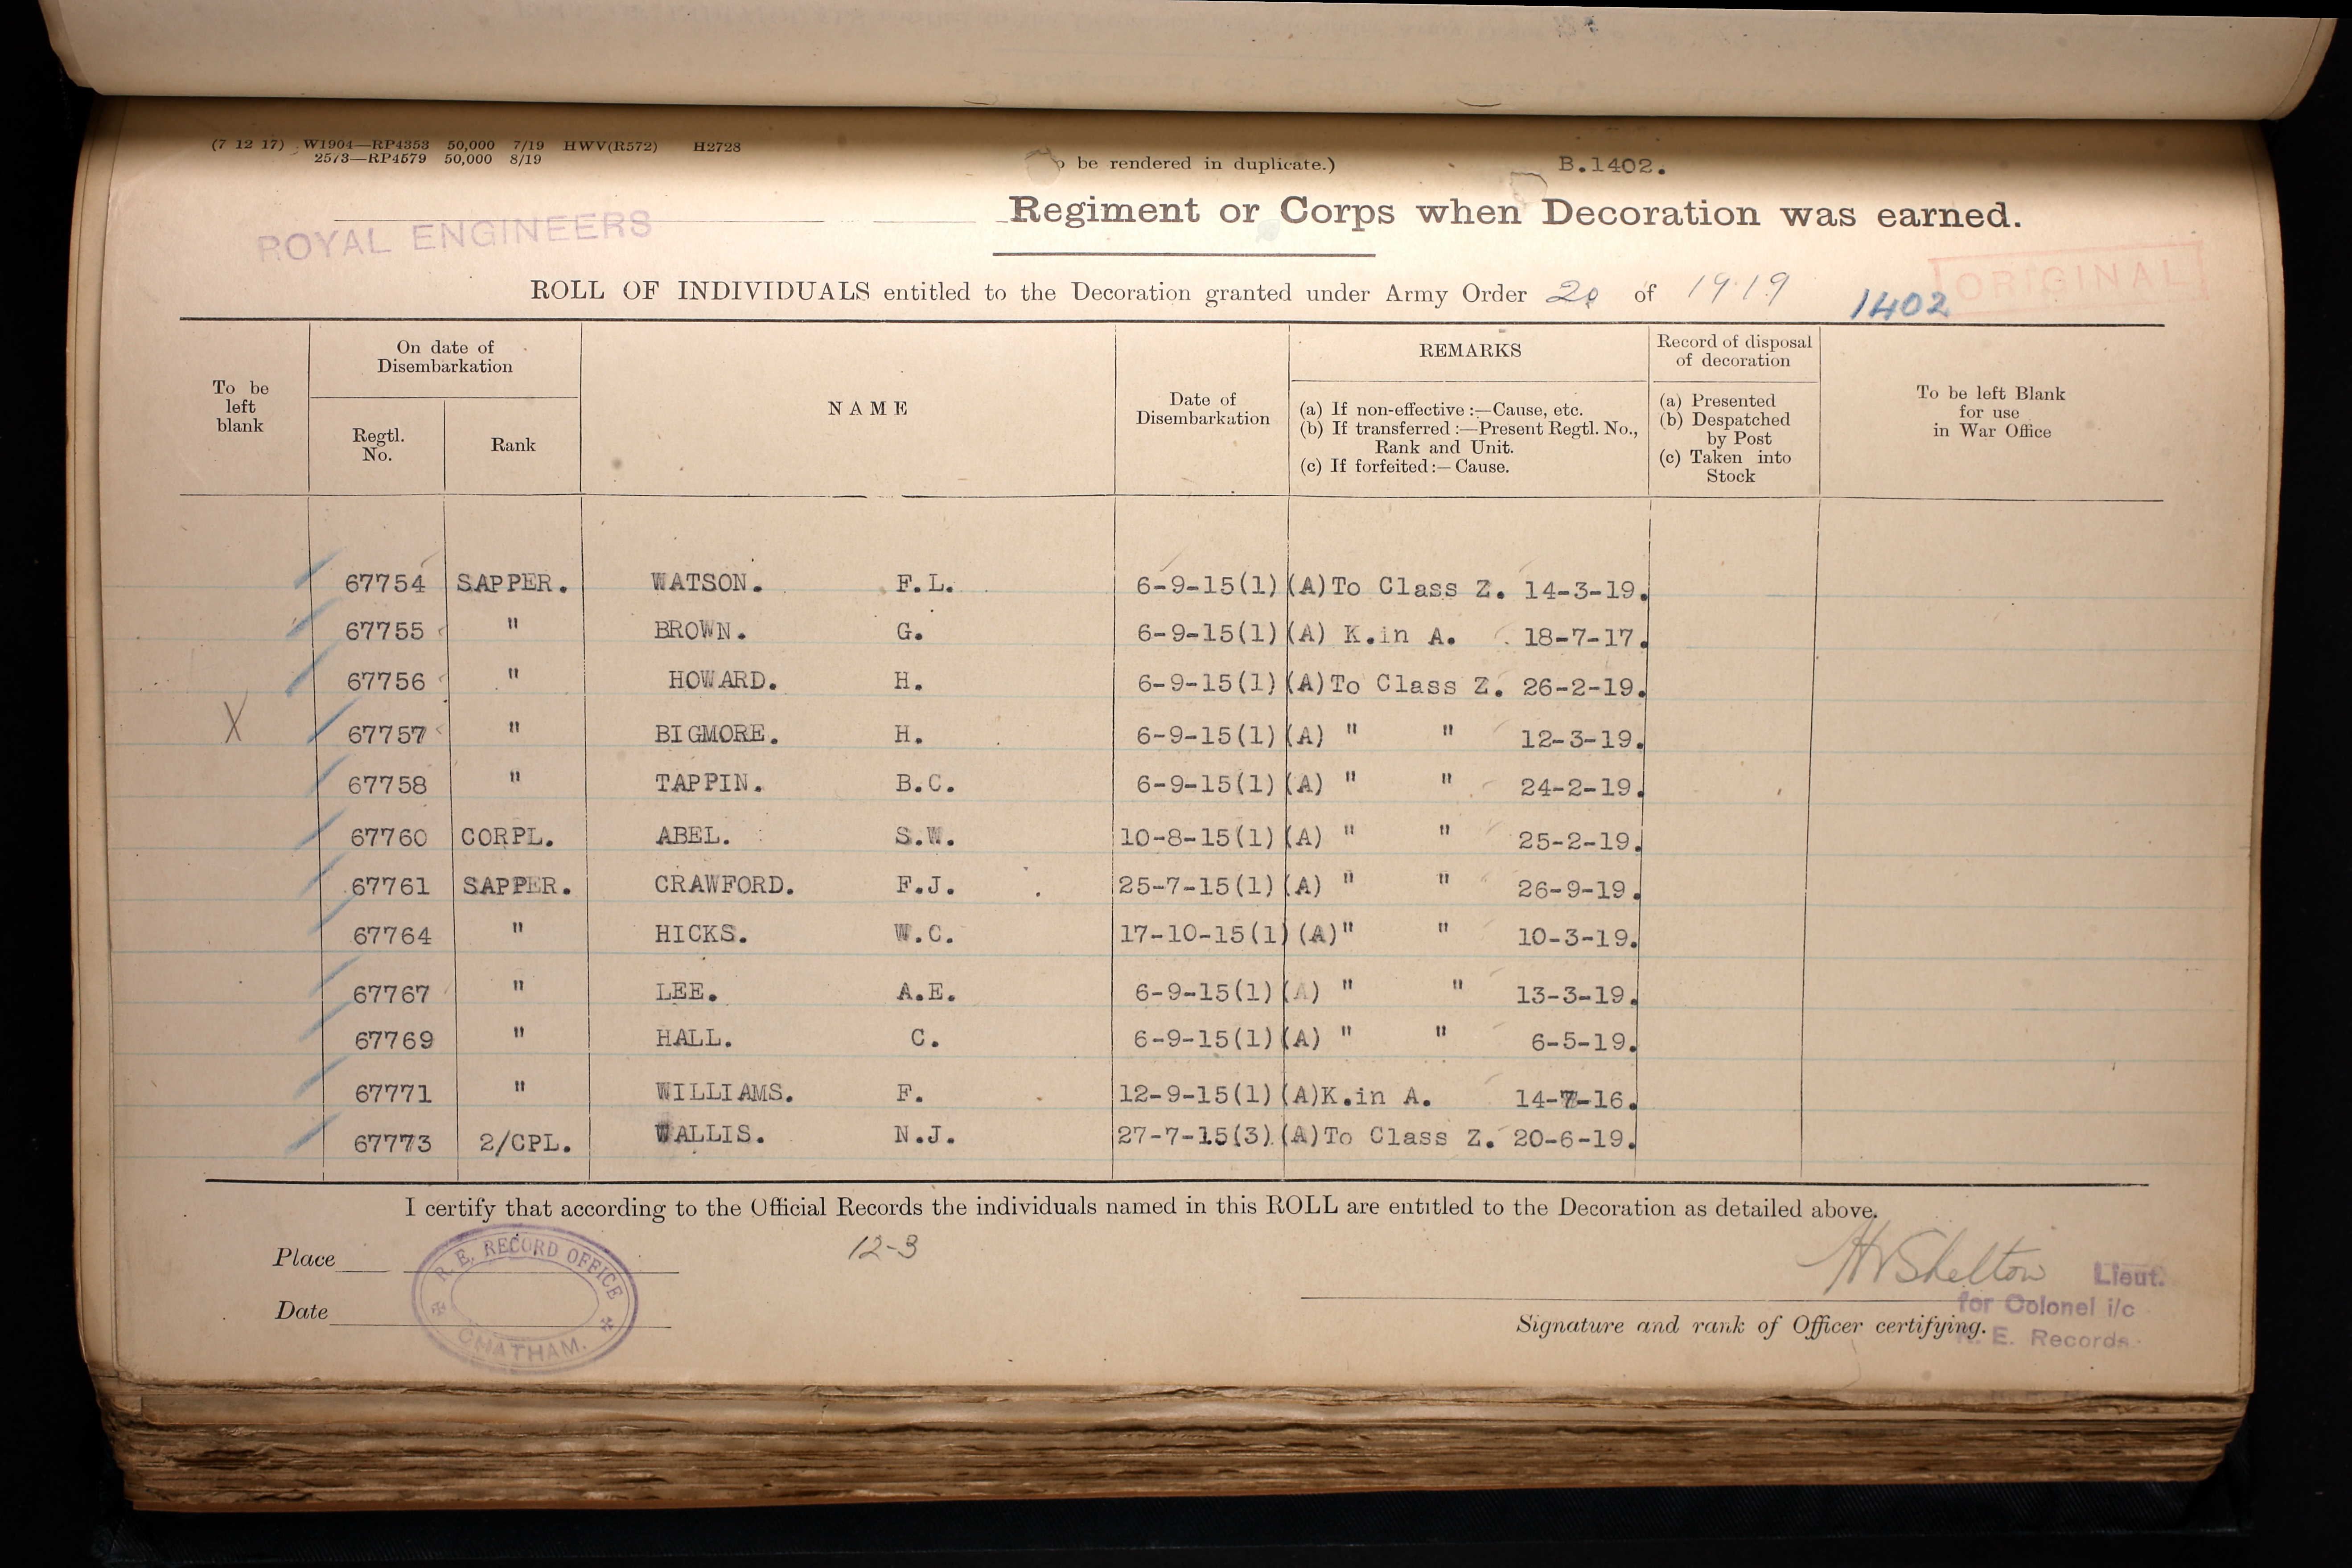 (7 12 17) W1904—RP4353 50,000 7/19 HWV(R572) H2728
2573—RP4579 50,000 8/19
be rendered in duplicate.)
B.1402.
ROYAL ENGINEERS
Regiment or Corps when Decoration was earned.
ORIGINAL
ROLL OF INDIVIDUALS entitled to the Decoration granted under Army Order 20 of 1919
1402
To be left blank
On date of Disembarkation
Regtl. No.
Rank
NAME
Date of Disembarkation
REMARKS
(a) If non-effective:—Cause, etc.
(b) If transferred:—Present Regtl. No., Rank and Unit.
(c) If forfeited:—Cause.
Record of disposal of decoration
(a) Presented
(b) Despatched by Post
(c) Taken into Stock
To be left Blank for use in War Office
67754 SAPPER. WATSON. F.L. 6-9-15(1) (A)To Class Z. 14-3-19.
67755 " BROWN. G. 6-9-15(1) (A) K.in A. 18-7-17.
67756 " HOWARD. H. 6-9-15(1) (A)To Class Z. 26-2-19.
X 67757 " BIGMORE. H. 6-9-15(1) (A) " " 12-3-19.
67758 " TAPPIN. B.C. 6-9-15(1) (A) " " 24-2-19.
67760 CORPL. ABEL. S.W. 10-8-15(1) (A) " " 25-2-19.
67761 SAPPER. CRAWFORD. F.J. 25-7-15(1) (A) " " 26-9-19.
67764 " HICKS. W.C. 17-10-15(1) (A)" " 10-3-19.
67767 " LEE. A.E. 6-9-15(1) (A) " " 13-3-19.
67769 " HALL. C. 6-9-15(1) (A) " " 6-5-19.
67771 " WILLIAMS. F. 12-9-15(1) (A)K.in A. 14-7-16.
67773 2/CPL. WALLIS. N.J. 27-7-15(3) (A)To Class Z. 20-6-19.
I certify that according to the Official Records the individuals named in this ROLL are entitled to the Decoration as detailed above.
Place
R. E. RECORD OFFICE
CHATHAM.
12-3
Date
HVShelton Lieut.
for Colonel i/c
Signature and rank of Officer certifying.
R. E. Records.